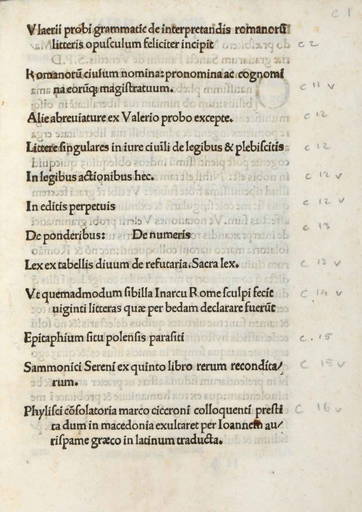 c 1
Vlaerii probi grammatic̄ de interpretandis romanorū
litteris opusculum feliciter incipit c 2
Romanorū ciuium nomina: pronomina ac cognomi
na eorūq; magistratuum. c 11 v
Alie abreuiature ex Valerio probo excepte. c 12
Littere singulares in iure ciuili de legibus & plebiscitis c 12
In legibus actionibus hec. c 12 v
In editis perpetuis c 12 v
De ponderibus: De numeris c 13
Lex ex tabellis diuum de refutaria. Sacra lex. c 13 v
Vt quemadmodum sibilla in arcu Rome sculpi fecit c 14 v
uiginti litteras quæ per bedam declarare fuerūt
Epitaphium situ polensis parasiti c. 15
Sammonici Sereni ex quinto libro rerum recondita/ c 15 v
rum.
Phylisci cōsolatoria marco ciceroni colloquenti presti c 16 v
ta dum in macedonia exultaret per Ioannem au/
rispame græco in latinum traducta.